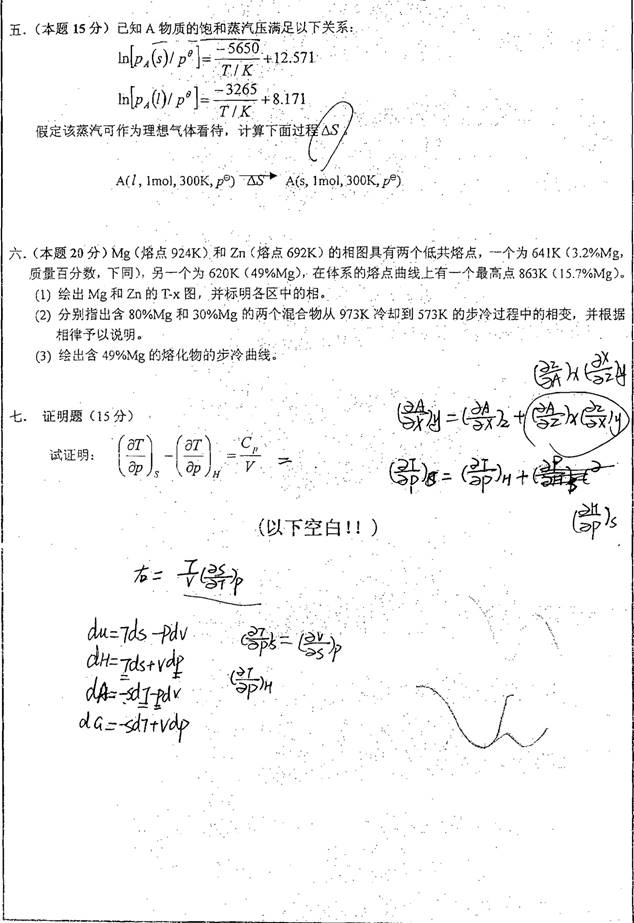 五.（本题 15 分）已知 A 物质的饱和蒸汽压满足以下关系:
ln[p_A(s)/p^θ]=-5650/(T/K)+12.571
ln[p_A(l)/p^θ]=-3265/(T/K)+8.171
假定该蒸汽可作为理想气体看待，计算下面过程ΔS。
A(l, 1mol, 300K, p^⊖) ΔS→ A(s, 1mol, 300K, p^⊖)
六.（本题 20 分）Mg（熔点 924K）和 Zn（熔点 692K）的相图具有两个低共熔点，一个为 641K（3.2%Mg，
质量百分数，下同），另一个为 620K（49%Mg），在体系的熔点曲线上有一个最高点 863K（15.7%Mg）。
(1) 绘出 Mg 和 Zn 的 T-x 图，并标明各区中的相。
(2) 分别指出含 80%Mg 和 30%Mg 的两个混合物从 973K 冷却到 573K 的步冷过程中的相变，并根据
相律予以说明。
(3) 绘出含 49%Mg 的熔化物的步冷曲线。
(∂z/∂A)x(∂x/∂z)y
七. 证明题（15 分）
(∂A/∂x)y=(∂A/∂x)z+(∂A/∂z)x(∂z/∂x)y
试证明: (∂T/∂p)_S-(∂T/∂p)_H=C_p/V =
(∂T/∂p)s=(∂T/∂p)H+
(∂H/∂p)s
(以下空白!! )
右= T/V(∂S/∂T)p
du=Tds-pdv
dH=Tds+vdp
dA=-sdT-pdv
dG=-sdT+vdp
(∂T/∂p)s=(∂V/∂S)p
(∂T/∂p)H